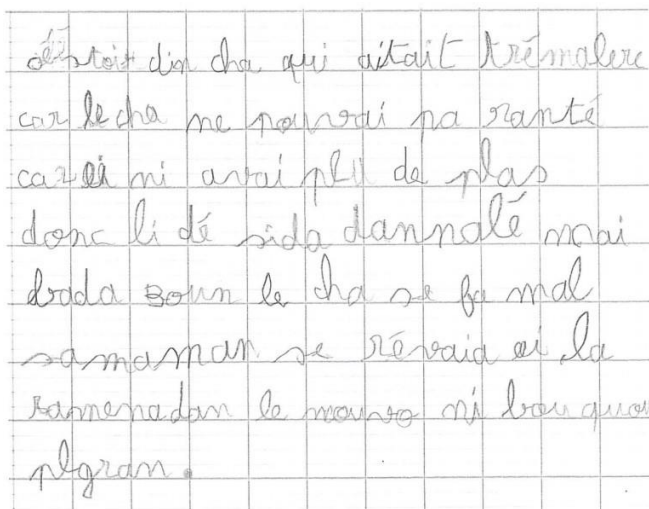 stoit din cha qui aitait trémalere
car le cha ne pouvrai pa ranté
car ni avai plu de plas
donc li dé sida dannalé mai
drada boun le cha se fa mal
samaman se révaia ei la
ramenadan le nouvo ni bou quou
plgran.